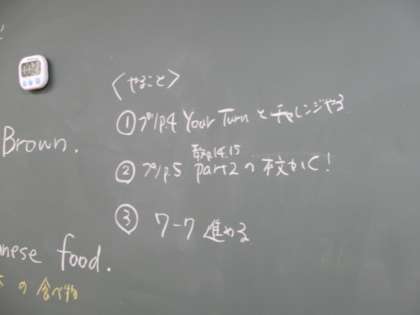 〈やること〉
①プリp.4 Your Turn とチャレンジやる
Brown.
教p14.15
②プリp.5 part2の本文かく!
③ワーク進める
nese food.
の食べ物